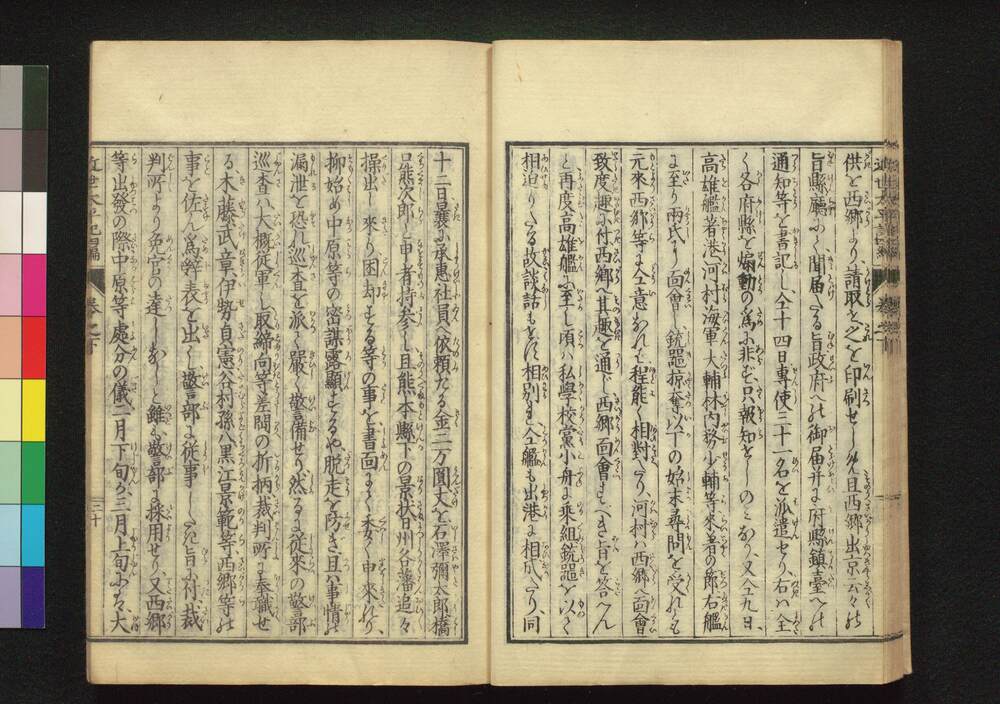 供を西郷より請取之を印刷せしめ且西郷出京云々の
旨縣廳にて聞届たる旨政府への御届并に府縣鎮臺への
通知等を書記し仝十四日専使三十一名を派遣せり右ハ全
く各府縣を煽動の為に非ず只報知をしのみなり又仝九日
高雄艦着港河村海軍大輔林内務少輔等来着の節右艦
に至り兩氏に面會し銃噐掠奪以下の始末尋問を受れども
元來西郷等に仝意なれバ程能く相對たり河村ハ西郷へ面會
致度趣に付西郷へ其趣を通じ西郷面會すべき旨を答へん
と再度高雄艦に至し頃ハ私學校黨小舟に乗組銃噐を以て
相迫りたる故談話もせず相別れ仝艦も出港に相成たり同
十二日曩に承惠社員へ依頼たる金二万圓丈を石澤彌太郎橋
口熊次郎と申者持参し且熊本縣下の景状日州各藩追々
操出し來り困却する等の事を書面にて委く申來れり
柳始め中原等の密謀露顯するや脱走を防ぎ且ハ事情の
漏泄を恐れ巡査を派し嚴く警備せり然るに従來の警部
巡査ハ大概従軍し取締向等差閊の折柄裁判所に奉職せ
る木藤武章伊勢貞憲谷村孫八黒江景範等西郷等の
事を佐ん為辞表を出して警部に従事したき旨に付裁
判所より免官の達しなしと雖も警部に採用せり又西郷
等出發の際中原等處分の儀二月下旬か三月上旬にハ大
近世太平記四編
巻之下
三十